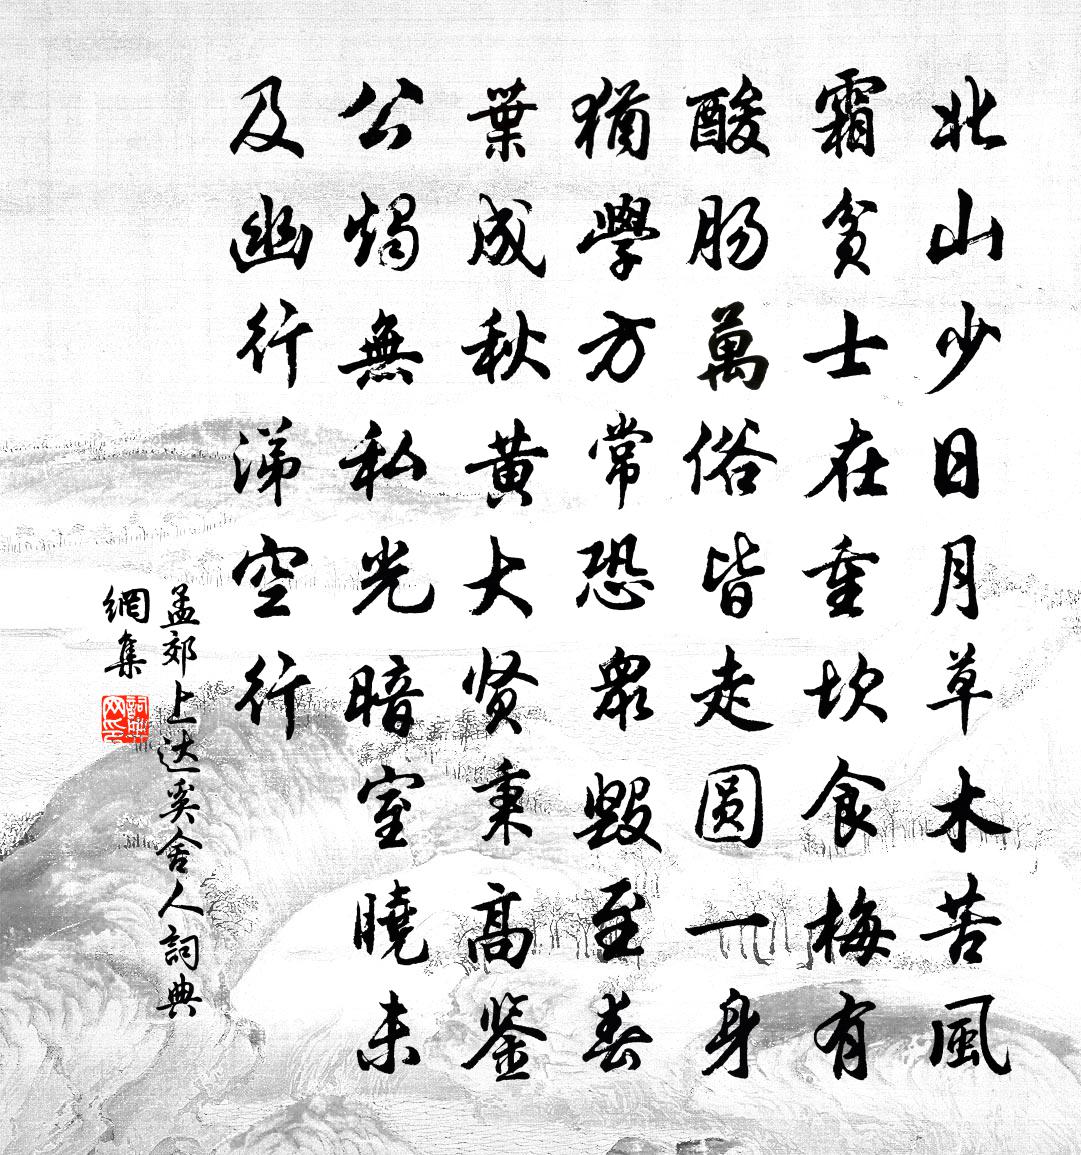 北山少日月草木苦風
霜貧士在重坎食梅有
酸肠萬俗皆走圆一身
猶學方常恐衆毀至春
葉成秋黄大贤秉高鉴
公燭無私光暗室曉未
及幽行涕空行
孟郊上达奚舍人詞典
網集